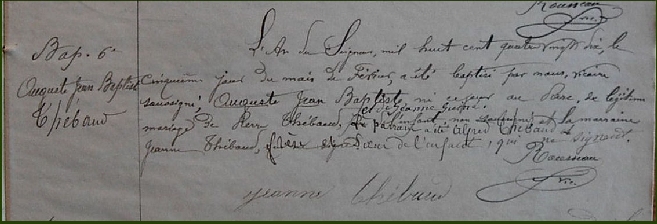 Rousseau
vic.
Bap. 6e
Auguste Jean Baptiste
Thébaud
L'An du Seigneur, mil huit cent quatre vingt dix le
Cinquième jour du mois de Février, a été baptisé par nous, vicaire
soussigné, Auguste Jean Baptiste, né ce jour au de légitime
mariage de Pierre Thébaud, et de Jeanne
parrain a été Alfred Thébaud et la marraine
Jeanne Thébaud, frère et Sœur de l'enfant, signent.
Rousseau
vic.
Jeanne Thébaud